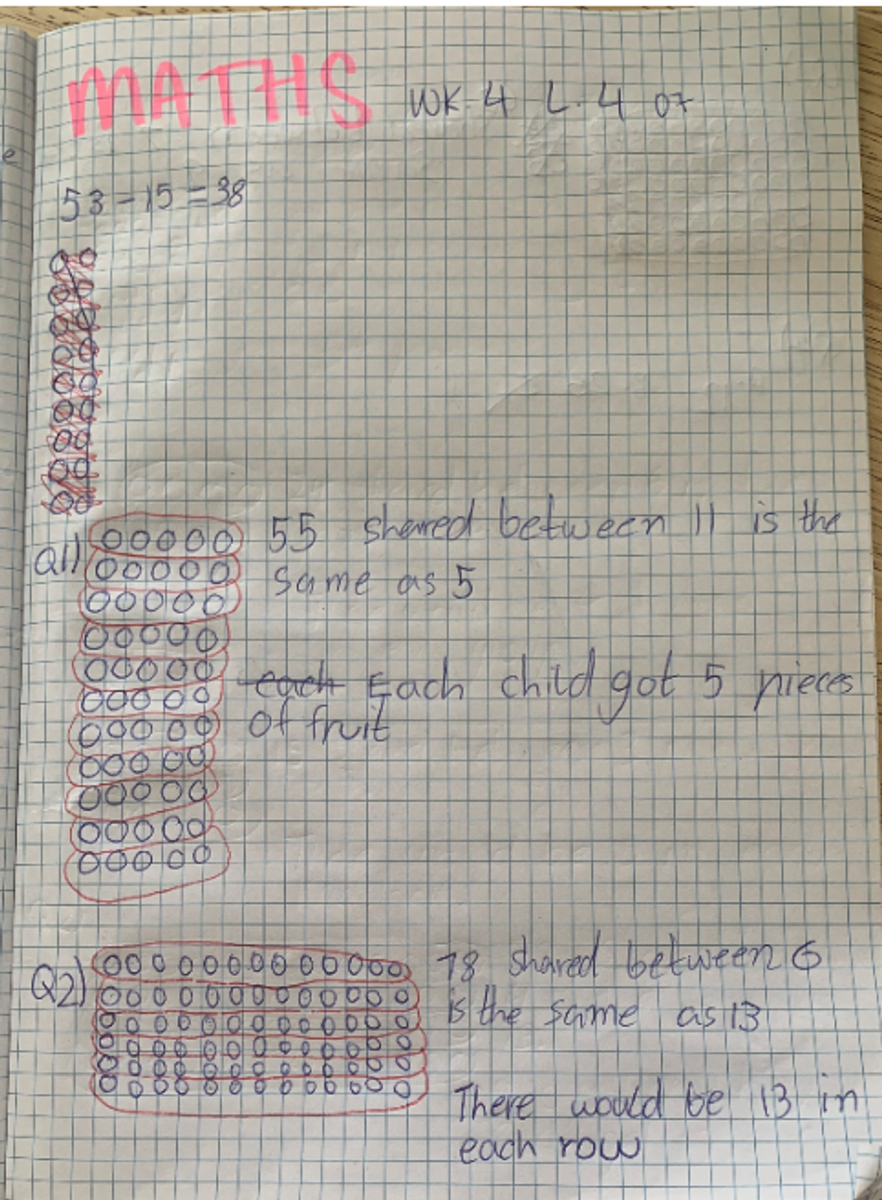 MATHS WK. 4 L. 4 07
53 - 15 = 38
Q1) 55 shared between 11 is the
same as 5
each Each child got 5 pieces
of fruit
Q2) 78 shared between 6
is the same as 13
There would be 13 in
each row